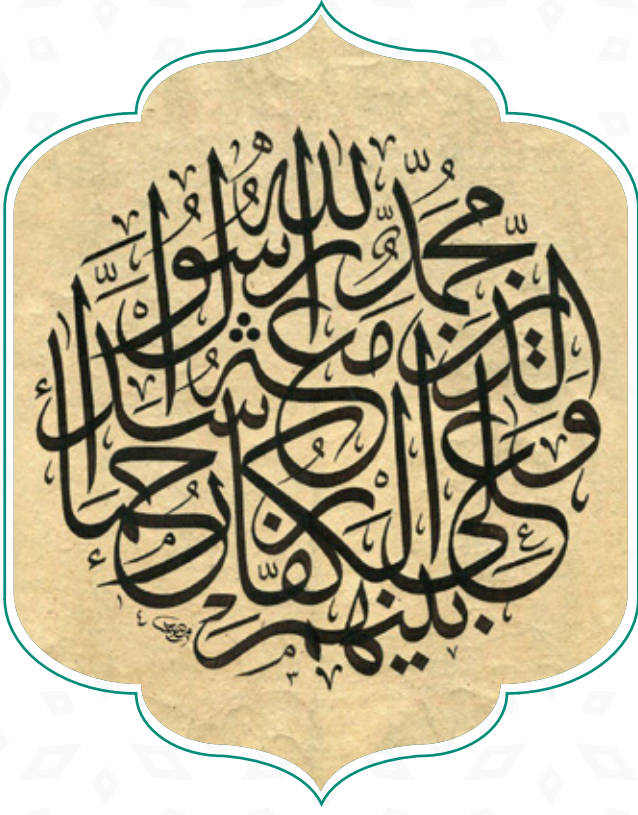 محمد رسول الله
والذين معه أشداء
على الكفار رحماء
بينهم